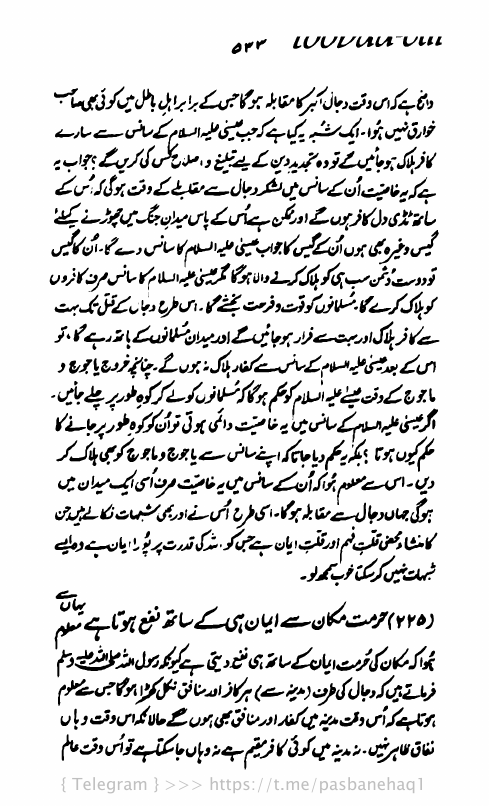 ۵۳۳
واضح ہے کہ اس وقت دجال اکبر کا مقابلہ ہوگا جس کے برابر اہل باطل میں کوئی بھی صاحب
خوارق نہیں ہُوا۔ ایک شبہ یہ کیا ہے کہ جب عیسٰی علیہ السلام کے سانس سے سارے
کافر ہلاک ہو جائیں گے تو وہ تجدید دین کے لیے تبلیغ و اصلاح کس کی کریں گے ؟ جواب یہ
ہے کہ یہ خاصیت اُن کے سانس میں لشکر دجال سے مقابلے کے وقت ہوگی کہ اُس کے
ساتھ ٹڈی دل کافر ہوں گے اور ممکن ہے اُس کے پاس میدان جنگ میں چھوڑنے کیلئے
گیس وغیرہ بھی ہوں اُن کے گیس کا جواب عیسٰی علیہ السلام کا سانس دے گا۔ اُن کا گیس
تو دوست دشمن سب ہی کو ہلاک کرنے والا ہوگا مگر عیسٰی علیہ السلام کا سانس صرف کافروں
کو ہلاک کرے گا۔ مُسلمانوں کو قوت و فرحت بخشے گا۔ اس طرح دجال کے قتل تک بہت
سے کافر ہلاک اور بہت سے فرار ہو جائیں گے اور میدان مُسلمانوں کے ہاتھ رہے گا، تو
اس کے بعد عیسٰی علیہ السلام کے سانس سے کفار ہلاک نہ ہوں گے۔ چنانچہ خروج یاجوج و
ماجوج کے وقت عیسٰے علیہ السلام کو حکم ہوگا کہ مُسلمانوں کو لے کر کوہ طور پر چلے جائیں۔
اگر عیسٰی علیہ السلام کے سانس میں یہ خاصیت دائمی ہوتی تو اُن کو کوہ طور پر جانے کا
حکم کیوں ہوتا ؟ بلکہ یہ حکم دیا جاتا کہ اپنے سانس سے یاجوج و ماجوج کو بھی ہلاک کر
دیں۔ اس سے معلوم ہُوا کہ اُن کے سانس میں یہ خاصیت صرف اُسی ایک میدان میں
ہوگی جہاں دجال سے مقابلہ ہوگا۔ اسی طرح اُس نے اور بھی شبہات نکالے ہیں جن
کا منشاء محض قلت فہم اور قلت ایمان ہے جس کو اللہ کی قدرت پر پُورا ایمان ہے وہ ایسے
شبہات نہیں کر سکتا خوب سمجھ لو۔
(۲۲۵) حرمت مکان سے ایمان ہی کے ساتھ نفع ہوتا ہے یہاں سے معلوم
ہُوا کہ مکان کی حُرمت ایمان کے ساتھ ہی نفع دیتی ہے کیونکہ رسول اللہ صلی اللہ علیہ وسلم
فرماتے ہیں کہ دجال کی طرف (مدینہ سے) ہر کافر اور منافق نکل کھڑا ہوگا جس سے معلوم
ہوتا ہے کہ اُس وقت مدینہ میں کفار اور منافق بھی ہوں گے حالانکہ اس وقت وہاں
نفاق ظاہر نہیں۔ نہ مدینہ میں کوئی کافر مقیم ہے نہ وہاں جا سکتا ہے تو اُس وقت عالم
{ Telegram } >>> https://t.me/pasbanehaq1